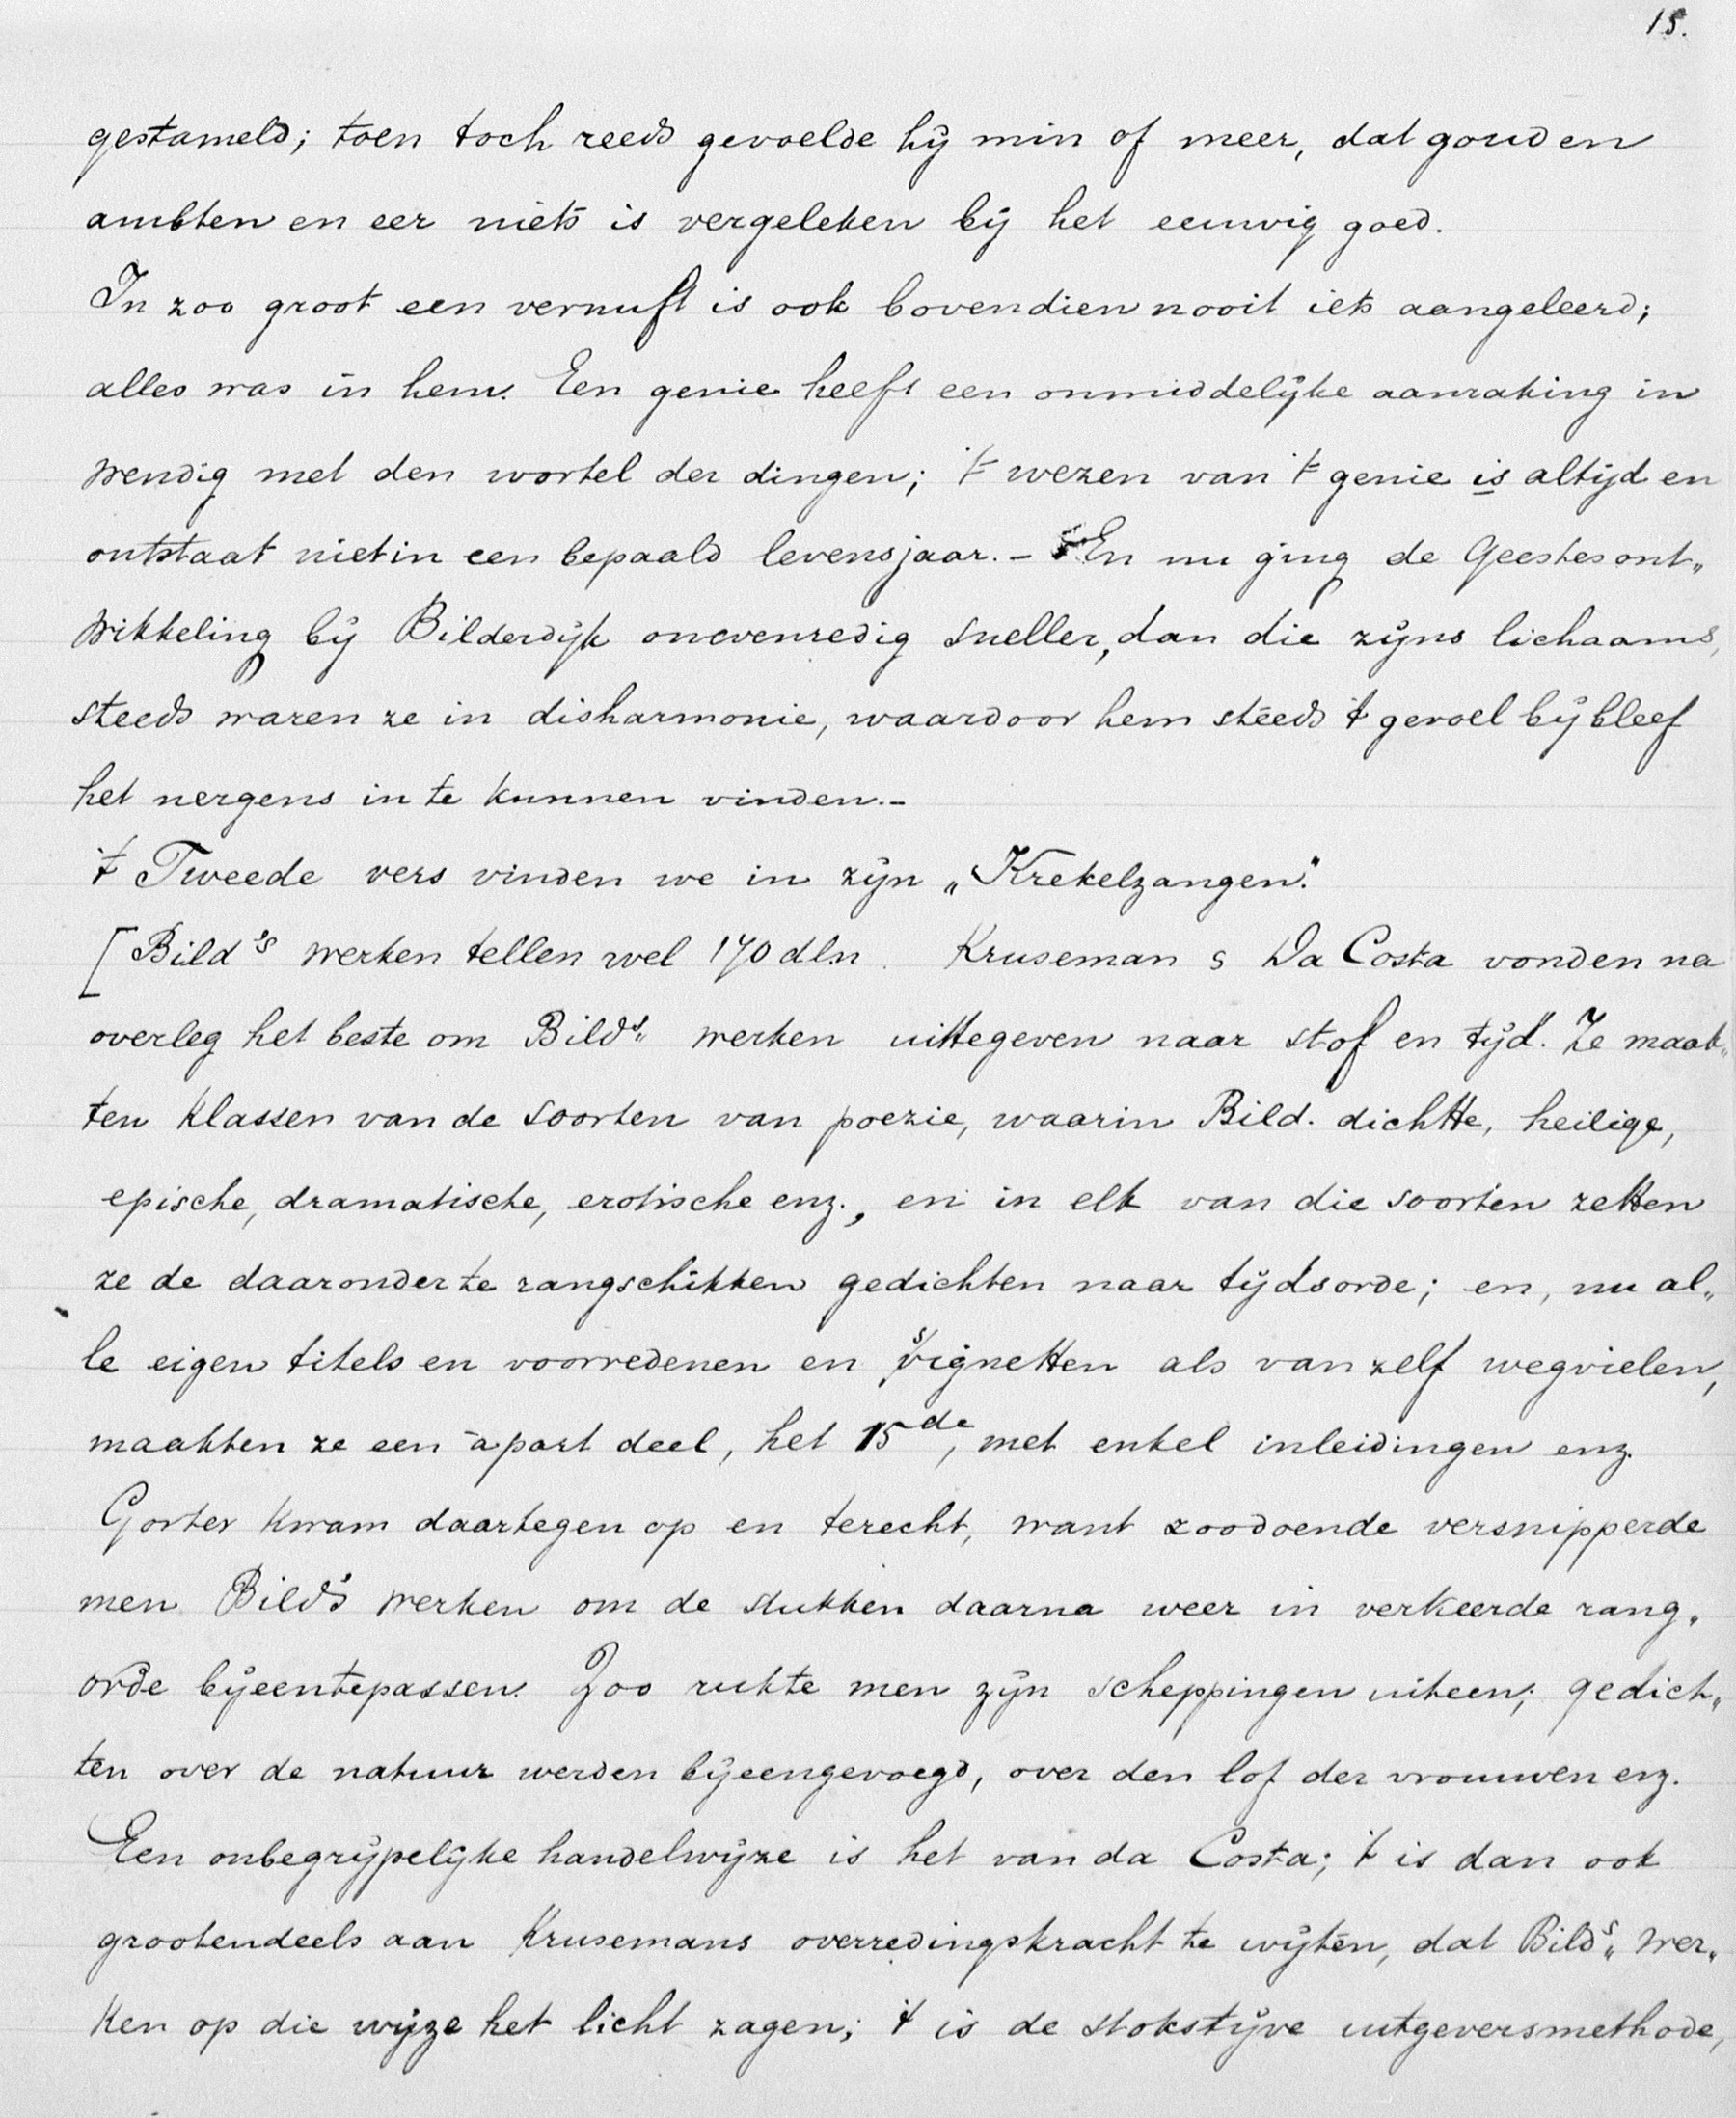 15.
gestameld; toen toch reeds gevoelde hij min of meer, dat goud en
ambten en eer niets is vergeleken bij het eeuwig goed.
In zoo groot een vernuft is ook bovendien nooit iets aangeleerd;
alles was in hem. Een genie heeft een onmiddelijke aanraking in
wendig met den wortel der dingen; 't wezen van 't genie is altijd en
ontstaat niet in een bepaald levensjaar. - En nu ging de Geestesont„
wikkeling bij Bilderdijk onevenredig sneller, dan die zijns lichaams,
steeds waren ze in disharmonie, waardoor hem steeds 't gevoel bijbleef
het nergens in te kunnen vinden.-
't Tweede vers vinden we in zijn „Krekelzangen".
[Bild's werken tellen wel 170 dln. Kruseman s Da Costa vonden na
overleg het beste om Bild's„ werken uittegeven naar stof en tijd. Ze maak„
ten klassen van de soorten van poezie, waarin Bild. dichtte, heilige,
epische, dramatische, erotische enz., en in elk van die soorten zetten
ze de daaronder te rangschikken gedichten naar tijdsorde; en, nu al„
le eigen titels en voorredenen en vignetten als van zelf wegvielen,
maakten ze een àpart deel, het 15de, met enkel inleidingen enz.
Gorter kwam daartegen op en terecht, want zoodoende versnipperde
men Bild's werken om de stukken daarna weer in verkeerde rang„
orde bijeentepassen. Zoo rukte men zijn scheppingen uiteen; gedich„
ten over de natuur werden bijeengevoegd, over den lof der vrouwen enz.
Een onbegrijpelijke handelwijze is het van da Costa; 't is dan ook
grootendeels aan Krusemans overredingskracht te wijten, dat Bild's„ wer„
ken op die wijze het licht zagen; 't is de stokstijve uitgeversmethode,